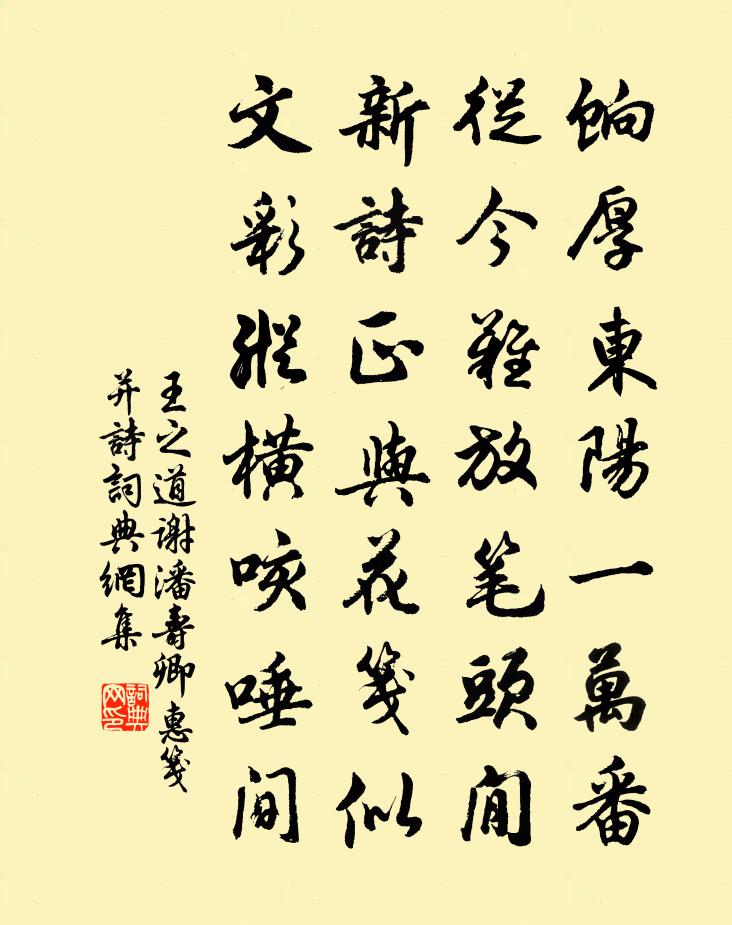 餉厚東陽一萬番
從今難放笔頭閒
新詩正與花箋似
文彩縱橫咳唾間
王之道謝潘壽卿惠箋
并詩詞典網集
詞典网印